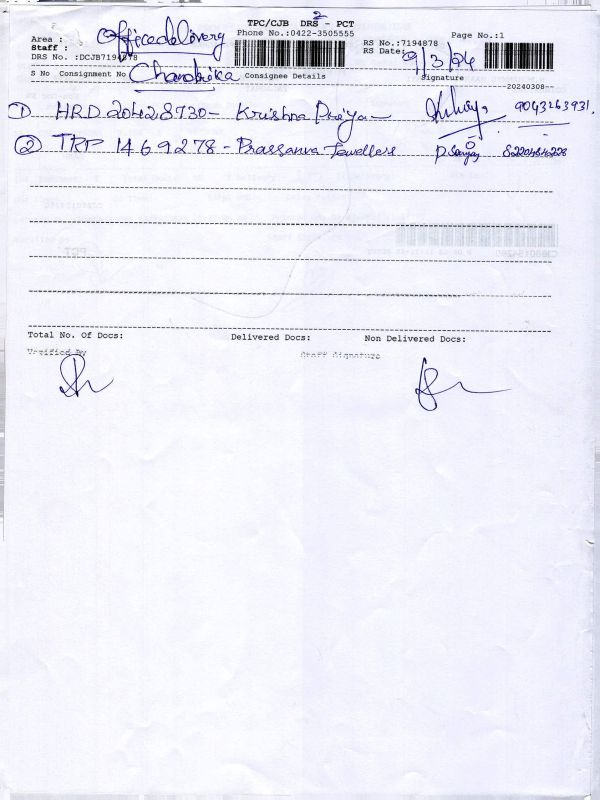 2
TPC/CJB DRS - PCT
Area : Office delivery Phone No.:0422-3505555 Page No.:1
Staff : RS No.:7194878
DRS No. :DCJB7194878 RS Date: 9/3/24
S No Consignment No Chandrika Consignee Details Signature
20240308
① HRD 20428730 - Krishna Priya - 9043263931.
② TRP 1469278 - Prassanna Jewellers P. Sanjay
Total No. Of Docs: Delivered Docs: Non Delivered Docs:
Verified By Staff Signature